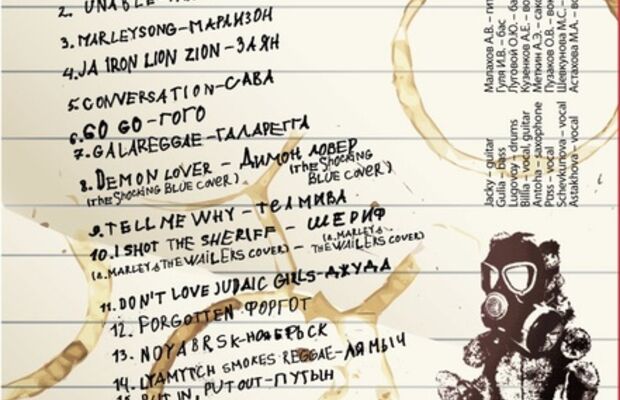 2. UNABLE
3. MARLEYSONG-МАРЛИЗОН
4. JA IRON LION ZION-ЗАЯН
5. CONVERSATION-САВА
6. GO GO-ГОГО
7. GALAREGGAE-ГАЛАРЕГГА
8. DEMON LOVER - ДИМОН ЛОВЕР
(THE SHOCKING BLUE COVER) (THE SHOCKING
BLUE COVER)
9. TELL ME WHY - ТЕЛМИВА
10. I SHOT THE SHERIFF - ШЕРИФ
(B. MARLEY & THE WAILERS COVER) - (B. MARLEY &
THE WAILERS COVER)
11. DON'T LOVE JUDAIC GIRLS-ДЖУДА
12. FORGOTTEN-ФОРГОТ
13. NOYABRSK-НОЯБРЬСК
14. LYAMYTCH SMOKES REGGAE-ЛЯМЫЧ
15. PUT IN, PUT OUT-ПУТЫН
Малахов А.В. – гит
Гуля И.В. – бас
Луговой О.Ю. – ба
Кузенков А.Е. – во
Меткин А.Э. – сакс
Пузаков О.В. – вок
Шевкунова М.С. –
Астахова М.А. – во
Jacky – guitar
Gulia – bass
Lugovoy – drums
Billia – vocal, guitar
Antoha – saxophone
– vocal
Schevkunova – vocal
Astakhova – vocal